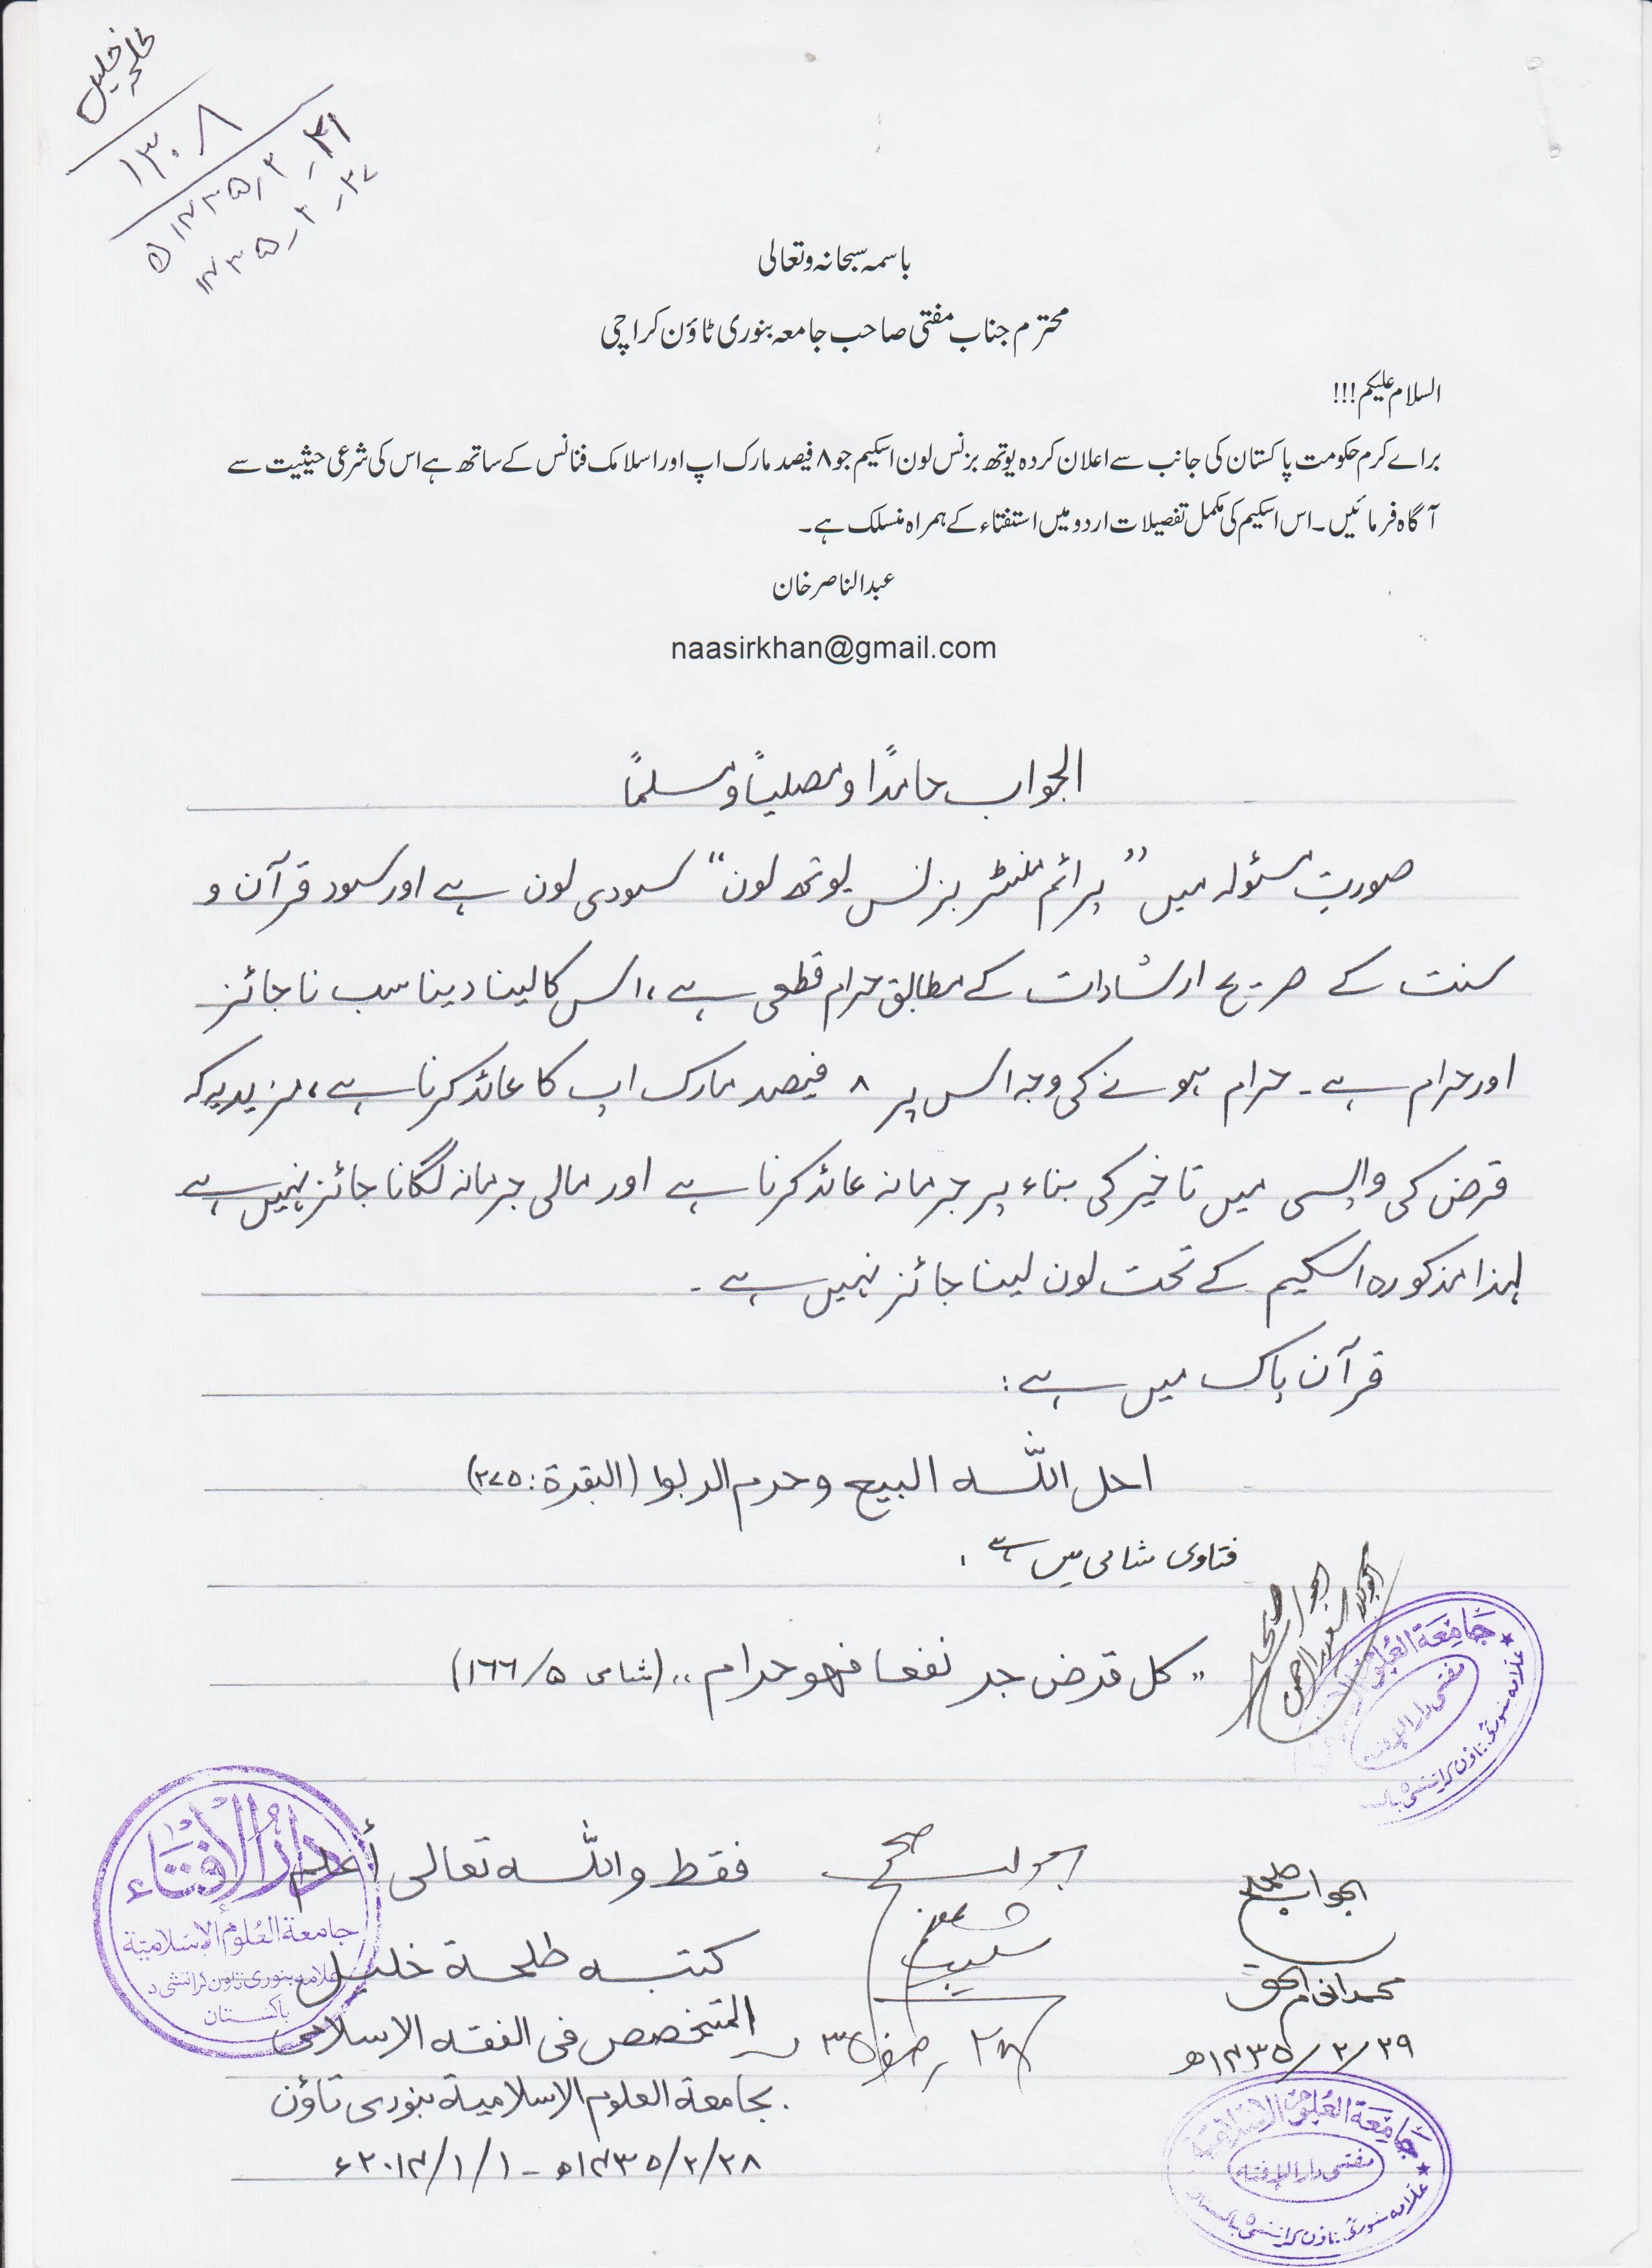 طلحہ خلیل
۱۳۰۸
باسمہ سبحانہ وتعالی
محترم جناب مفتی صاحب جامعہ بنوری ٹاؤن کراچی
السلام علیکم!!!
براے کرم حکومت پاکستان کی جانب سے اعلان کردہ یوتھ بزنس لون اسکیم جو ۸ فیصد مارک اپ اور اسلامک فنانس کے ساتھ ہے اس کی شرعی حیثیت سے
آگاہ فرمائیں۔ اس اسکیم کی مکمل تفصیلات اردو میں استفتاء کے ہمراہ منسلک ہے۔
عبدالناصر خان
naasirkhan@gmail.com
الجواب حامدًا ومصلیاً ومسلماً
صورتِ مسئولہ میں ”پرائم منسٹر بزنس یوتھ لون“ سودی لون ہے اور سود قرآن و
سنت کے صریح ارشادات کے مطابق حرام قطعی ہے، اس کا لینا دینا سب ناجائز
اور حرام ہے۔ حرام ہونے کی وجہ اس پر ۸ فیصد مارک اپ کا عائد کرنا ہے، مزید یہ کہ
قرض کی واپسی میں تاخیر کی بناء پر جرمانہ عائد کرنا ہے اور مالی جرمانہ لگانا جائز نہیں ہے
لہذا مذکورہ اسکیم کے تحت لون لینا جائز نہیں ہے۔
قرآن پاک میں ہے:
احل اللّٰه البیع وحرم الربوا (البقرة: ۲۷۵)
فتاوی شامی میں ہے
"کل قرض جر نفعا فهو حرام" (شامی ۵/۱۶۶)
الجواب صحیح
جَامِعَة العُلوم الاِسلامیّة
مفتی دار الافتاء
علامہ بنوری ٹاؤن کراتشی
فقط واللّٰه تعالی أعلم
کتبه طلحة خلیل
المتخصص فی الفقه الاسلامی
بجامعة العلوم الاسلامیة بنوری تاؤن
۲۸/۲/۱۴۳۵ھ - ۱/۱/۲۰۱۴ء
دَارُ الإِفْتَاء
جامعة العُلوم الإسلامیّة
علامہ بنوری تاون کراتشی ۵
باکستان
الجواب صحیح
۲۸ صفر ۳۵
الجواب صحیح
محمد انعام الحق
۲۹/۲/۱۴۳۵ھ
جَامِعَة العُلوم الاِسلامیّة
مفتی دار الافتاء
علامہ بنوری ٹاؤن کراتشی ۵ باکستان